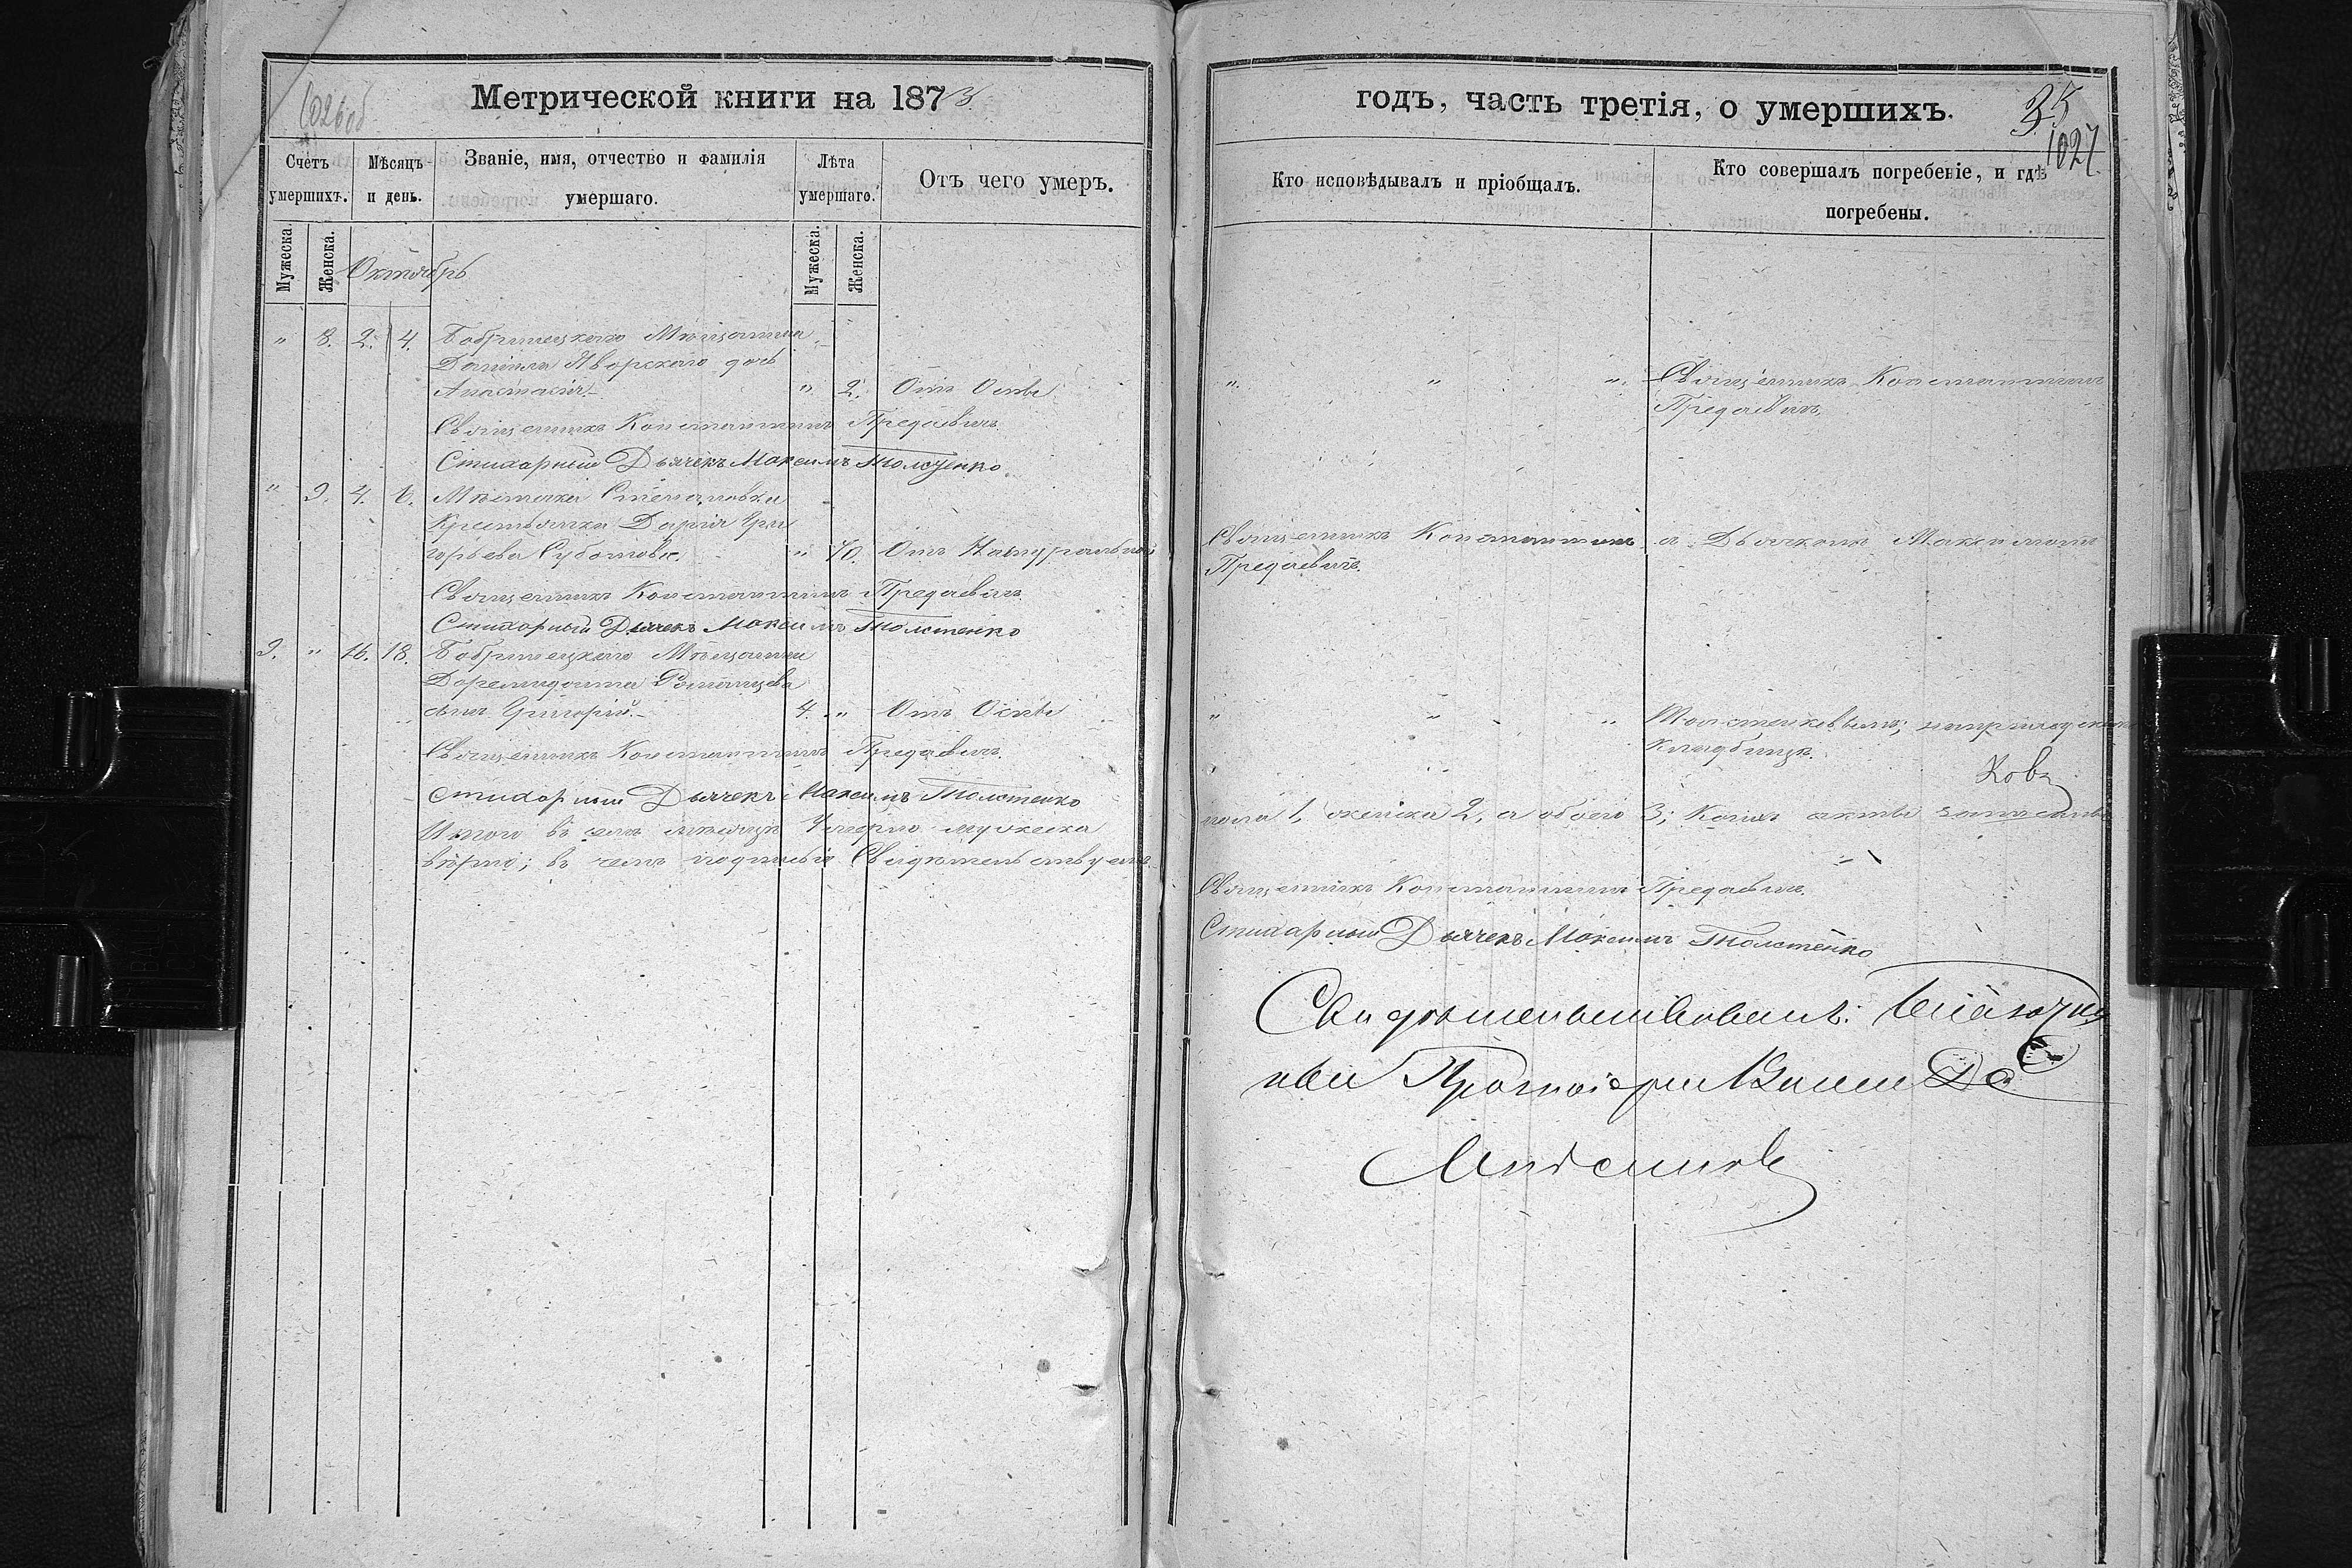 1026об
Метрической книги на 1873
Счетъ умершихъ.
Мѣсяцъ и день.
Званіе, имя, отчество и фамилія умершаго.
Лѣта умершаго.
Отъ чего умеръ.
Мужеска.
Женска.
Октябрь
Мужеска.
Женска.
" 8. 2. 4. Бобринецкаго Мѣщанина
Даніила Яворскаго дочь
Анастасія " 2. Отъ Оспы
Священникъ Константинъ Предаевичъ
Стихарный Дьячекъ Максимъ Толстенко
" 9. 4. 6. Мѣстечка Степановки
Крестьянка Дарія Гри
горьева Суботовк. " 70. Отъ Натуральной
Священникъ Константинъ Предаевичъ
Стихарный Дьячекъ Максимъ Толстенко
9. " 16. 18. Бобринецкаго Мѣщанина
Дормидонта Романцева
сынъ Григорій 4. " Отъ Оспы
Священникъ Константинъ Предаевичъ
Стихарный Дьячекъ Максимъ Толстенко
Итого въ семъ мѣсяцѣ Умерло мужеска
вѣрно; въ чемъ подписью Свидѣтельствуемъ
годъ, часть третія, о умершихъ.
35
1027
Кто исповѣдывалъ и пріобщалъ.
Кто совершалъ погребеніе, и гдѣ погребены.
" " " Священникъ Константинъ
Предаевичъ
Священникъ Константинъ съ Дьячкомъ Максимомъ
Предаевичъ
" " " Толстенковымъ; на приходскомъ
Кладбищѣ.
пола 1, женска 2, а обоего 3; Коихъ акты
Священникъ Константинъ Предаевичъ
Стихарный Дьячекъ Максимъ Толстенко
Свидѣтельствовалъ: Благочин
ный Протоіерей